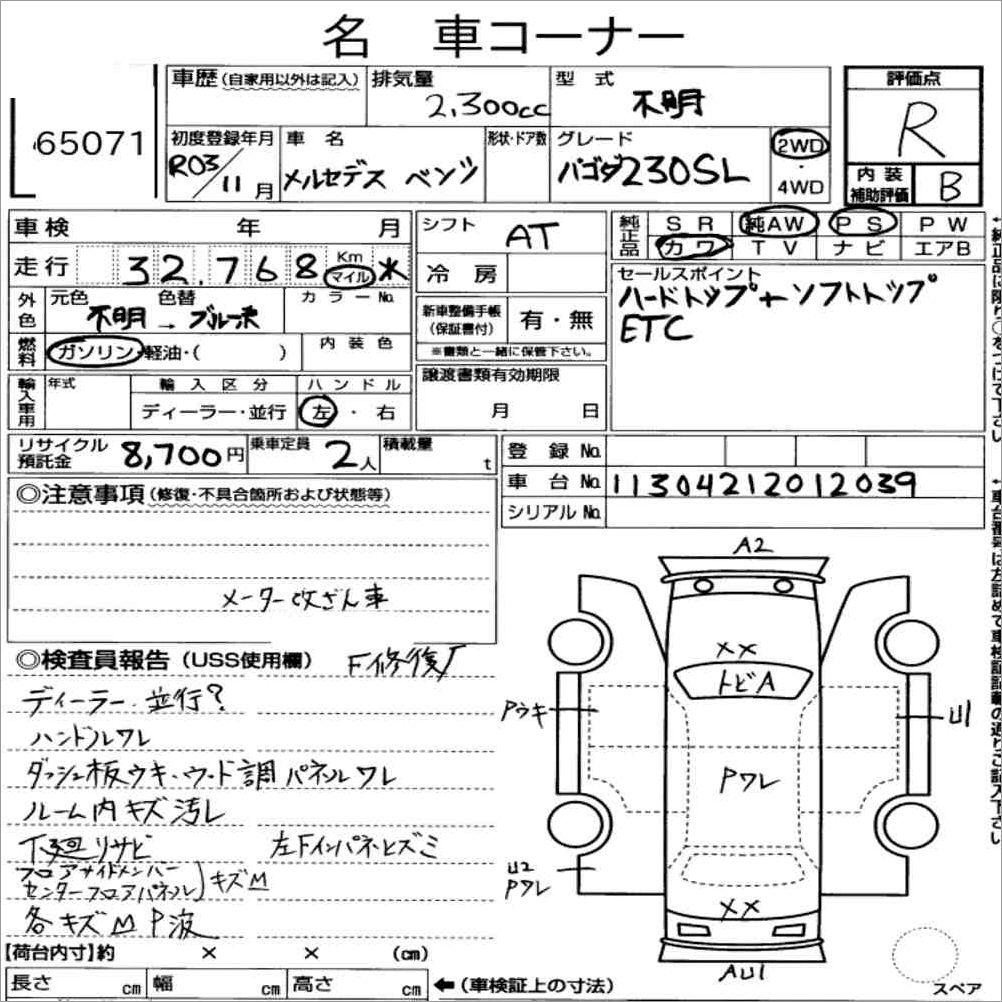 名 車コーナー
65071
車歴(自家用以外は記入)
排気量
2,300cc
型式
不明
評価点
R
初度登録年月
R03/11月
車名
メルセデス ベンツ
形状・ドア数
グレード
パゴダ230SL
2WD
・
4WD
内装
補助評価
B
車検 年 月
シフト
AT
純正品
SR 純AW PS PW
カワ TV ナビ エアB
走行 32,768 Km マイル
冷房
セールスポイント
ハードトップ+ソフトトップ
ETC
外色
元色 色替 カラーNo.
不明→ブルー
新車整備手帳
(保証書付)
有・無
※書類と一緒に保管下さい。
燃料
ガソリン・軽油・( )
内装色
譲渡書類有効期限
月 日
輸入車用
年式
輸入区分
ハンドル
ディーラー・並行
左・右
リサイクル
預託金
8,700円
乗車定員
2人
積載量
t
登録No.
車台No. 11304212012039
シリアルNo.
◎注意事項(修復・不具合箇所および状態等)
メーター改ざん車
◎検査員報告(USS使用欄)
F修復
ディーラー・並行?
ハンドルワレ
ダッシュ板ウキ・ウッド調パネルワレ
ルーム内キズ汚レ
下廻リサビ
左Fインパネヒズミ
フロアサイドメンバー
センターフロアパネル
キズM
各キズM P波
A2
××
トビA
Pウキ
U1
Pワレ
U2
Pワレ
××
AU1
スペア
【荷台内寸】約 × × (cm)
長さ cm 幅 cm 高さ cm ←(車検証上の寸法)
←純正品に限り○をつけて下さい
←車台番号は左詰めで車検証記載の通りご記入下さい